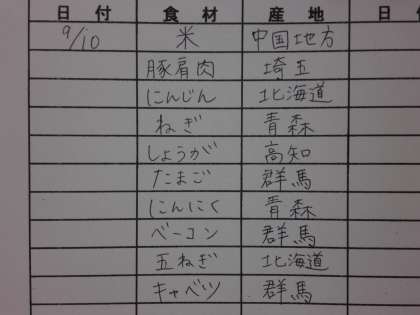 日付 食材 産地 日
9/10 米 中国地方
豚肩肉 埼玉
にんじん 北海道
ねぎ 青森
しょうが 高知
たまご 群馬
にんにく 青森
ベーコン 群馬
玉ねぎ 北海道
キャベツ 群馬